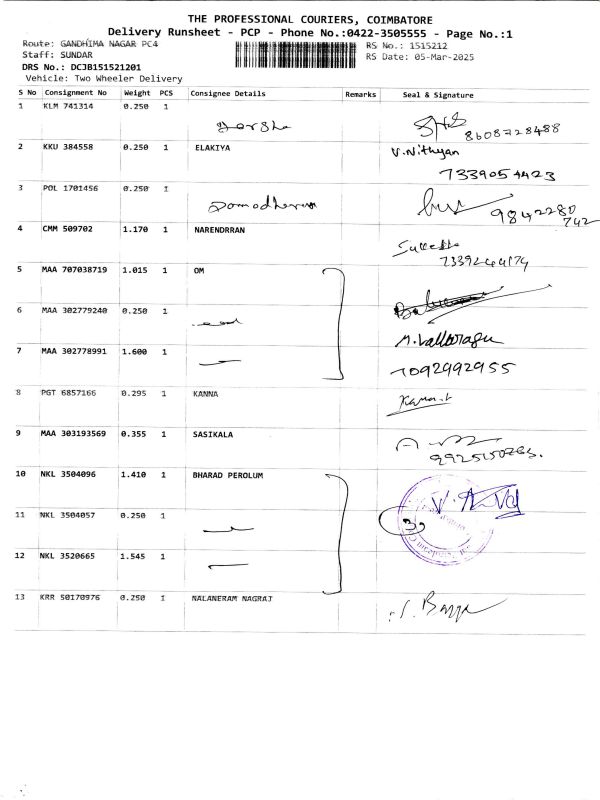 THE PROFESSIONAL COURIERS, COIMBATORE
Delivery Runsheet - PCP - Phone No.:0422-3505555 - Page No.:1
Route: GANDHIMA NAGAR PC4
RS No.: 1515212
Staff: SUNDAR
RS Date: 05-Mar-2025
DRS No.: DCJB151521201
Vehicle: Two Wheeler Delivery
S No Consignment No Weight PCS Consignee Details Remarks Seal & Signature
1 KLM 741314 0.250 1
8608728488
2 KKU 384558 0.250 1 ELAKIYA V.Nithyan
7339054423
3 POL 1701456 0.250 1
Damodharan
9842280
742
4 CMM 509702 1.170 1 NARENDRRAN
5 MAA 707038719 1.015 1 OM
6 MAA 302779240 0.250 1
7 MAA 302778991 1.600 1
7092992955
8 PGT 6857166 0.295 1 KANNA
9 MAA 303193569 0.355 1 SASIKALA
10 NKL 3504096 1.410 1 BHARAD PEROLUM
11 NKL 3504057 0.250 1
12 NKL 3520665 1.545 1
13 KRR 50170976 0.250 1 NALANERAM NAGRAJ